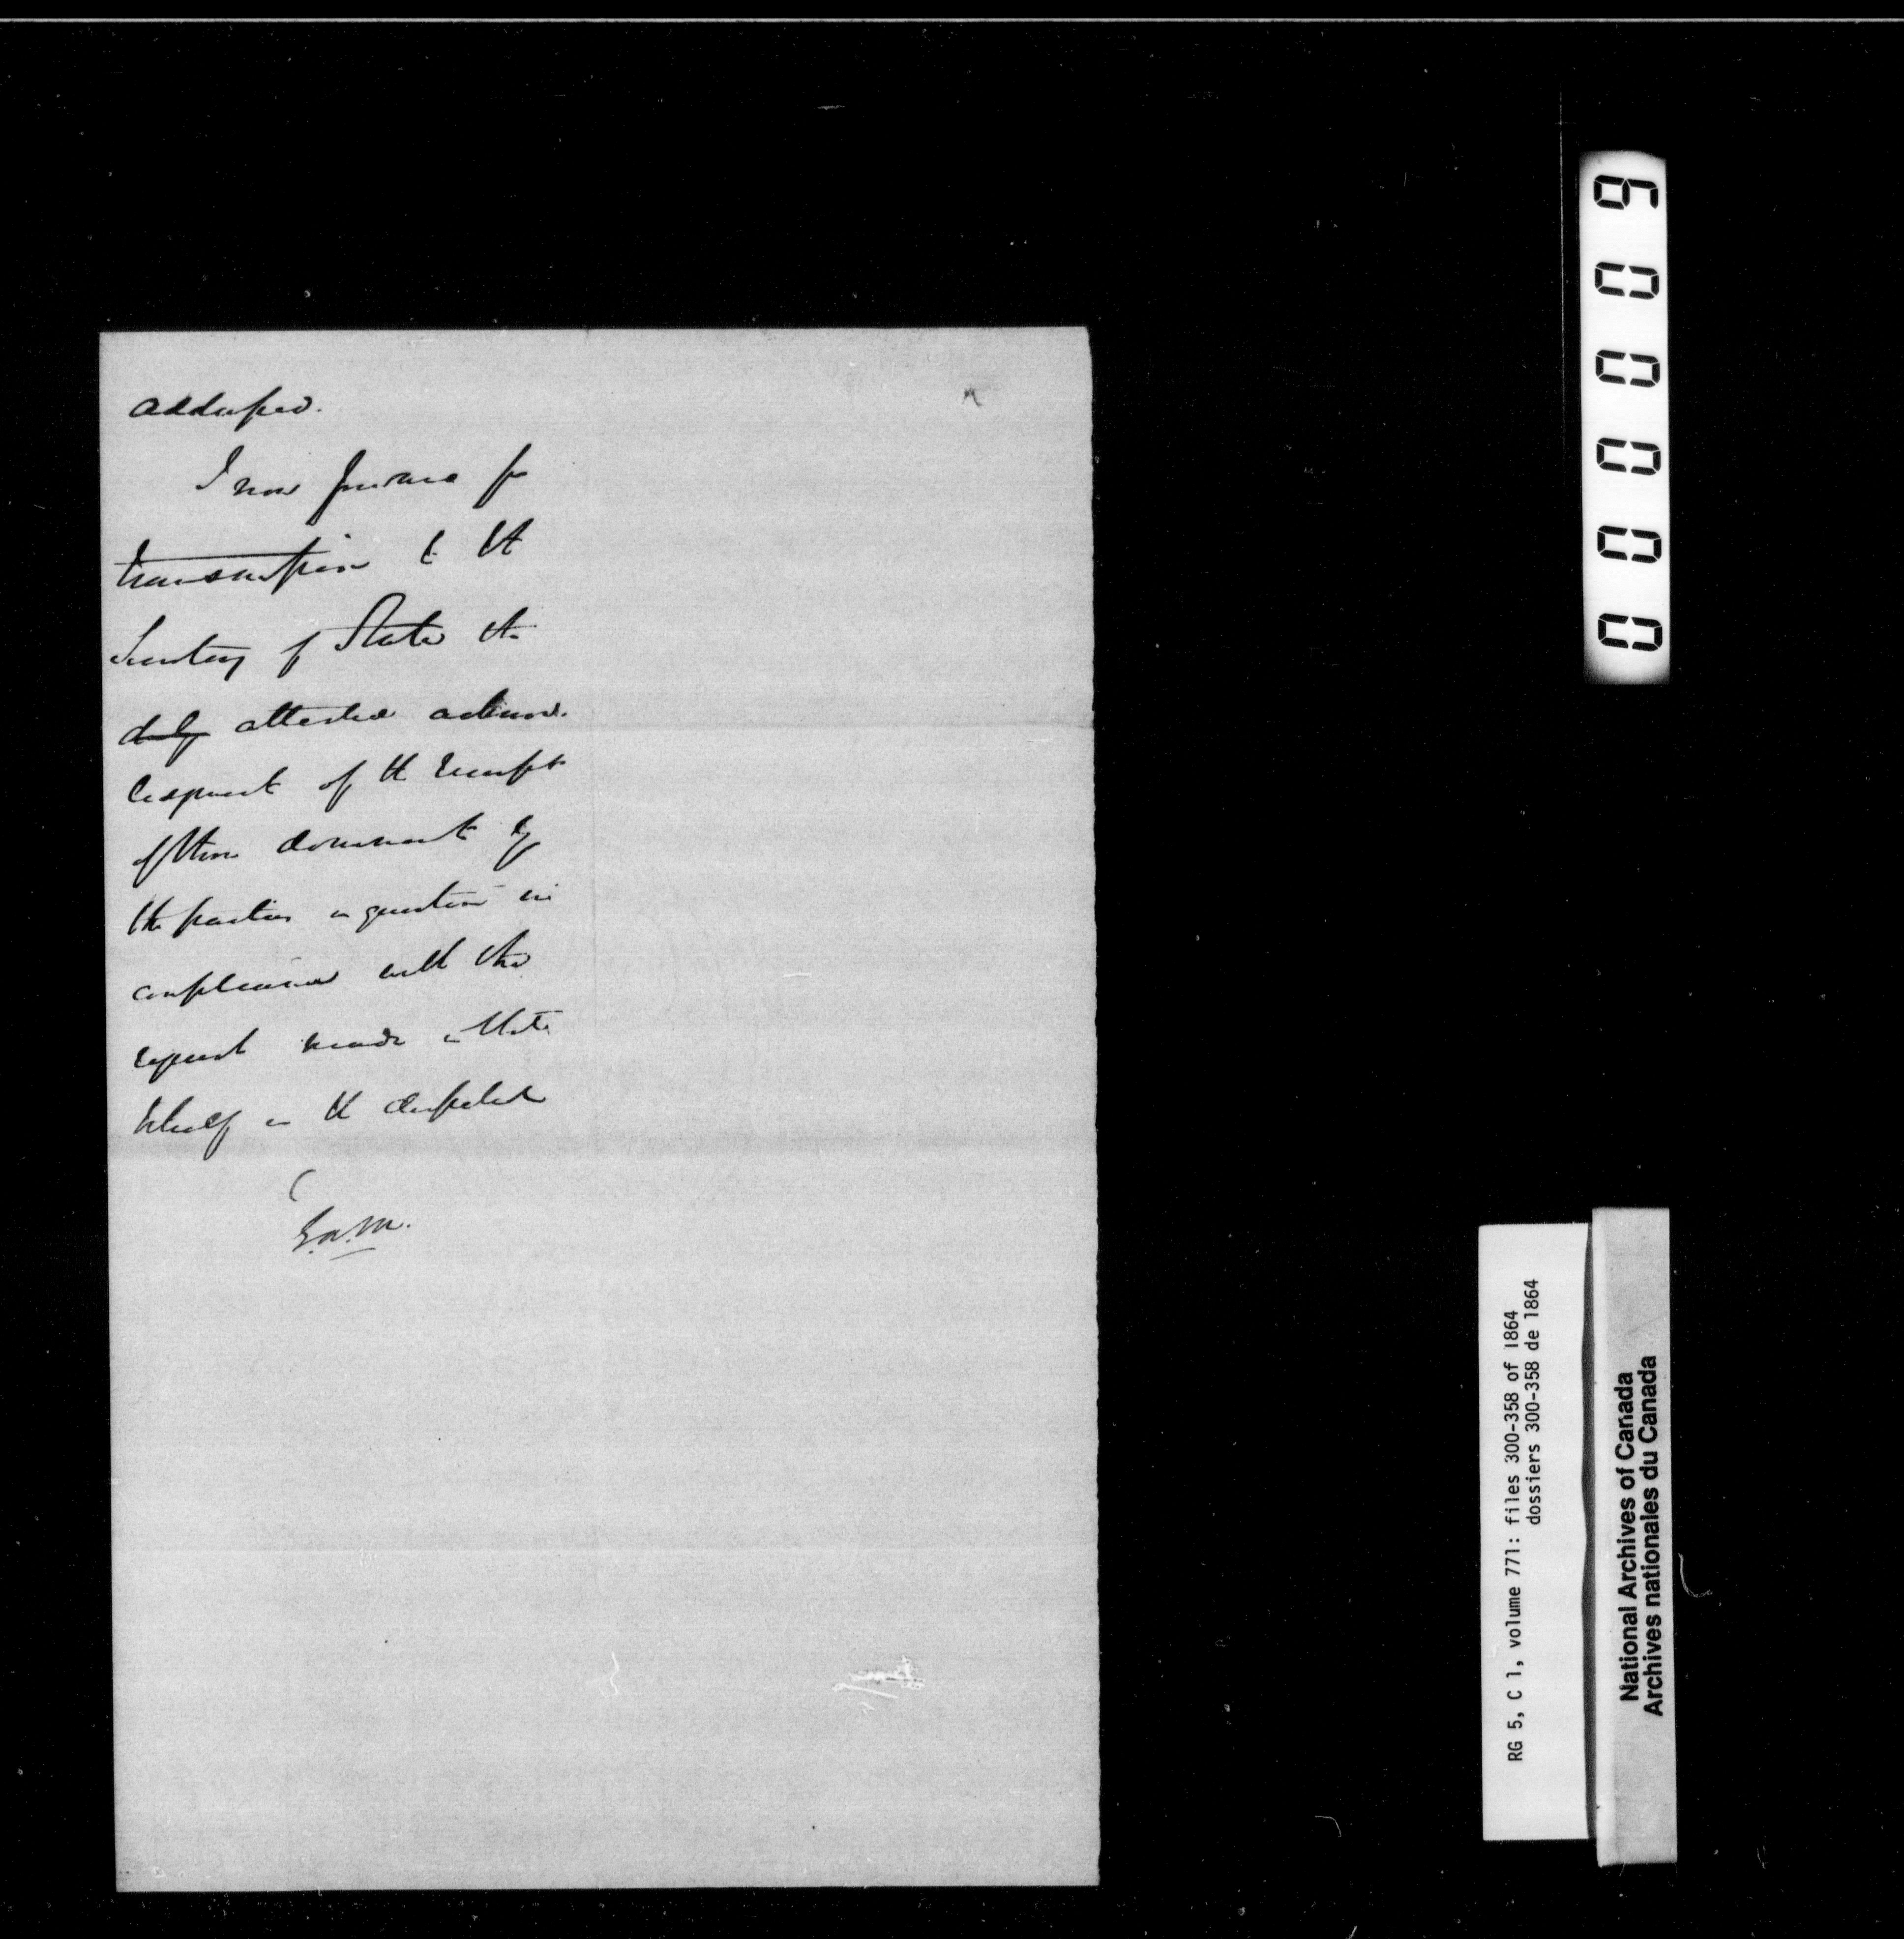 addressed.
I now forward for
transmission to the
Secretary of State the
duly attested acknow-
ledgment of the receipt
of these documents by
the parties in question in
compliance with the
request made in that
behalf in the despatch
000009
RG 5, C 1, volume 771: files 300-358 of 1864
dossiers 300-358 de 1864
National Archives of Canada
Archives nationales du Canada